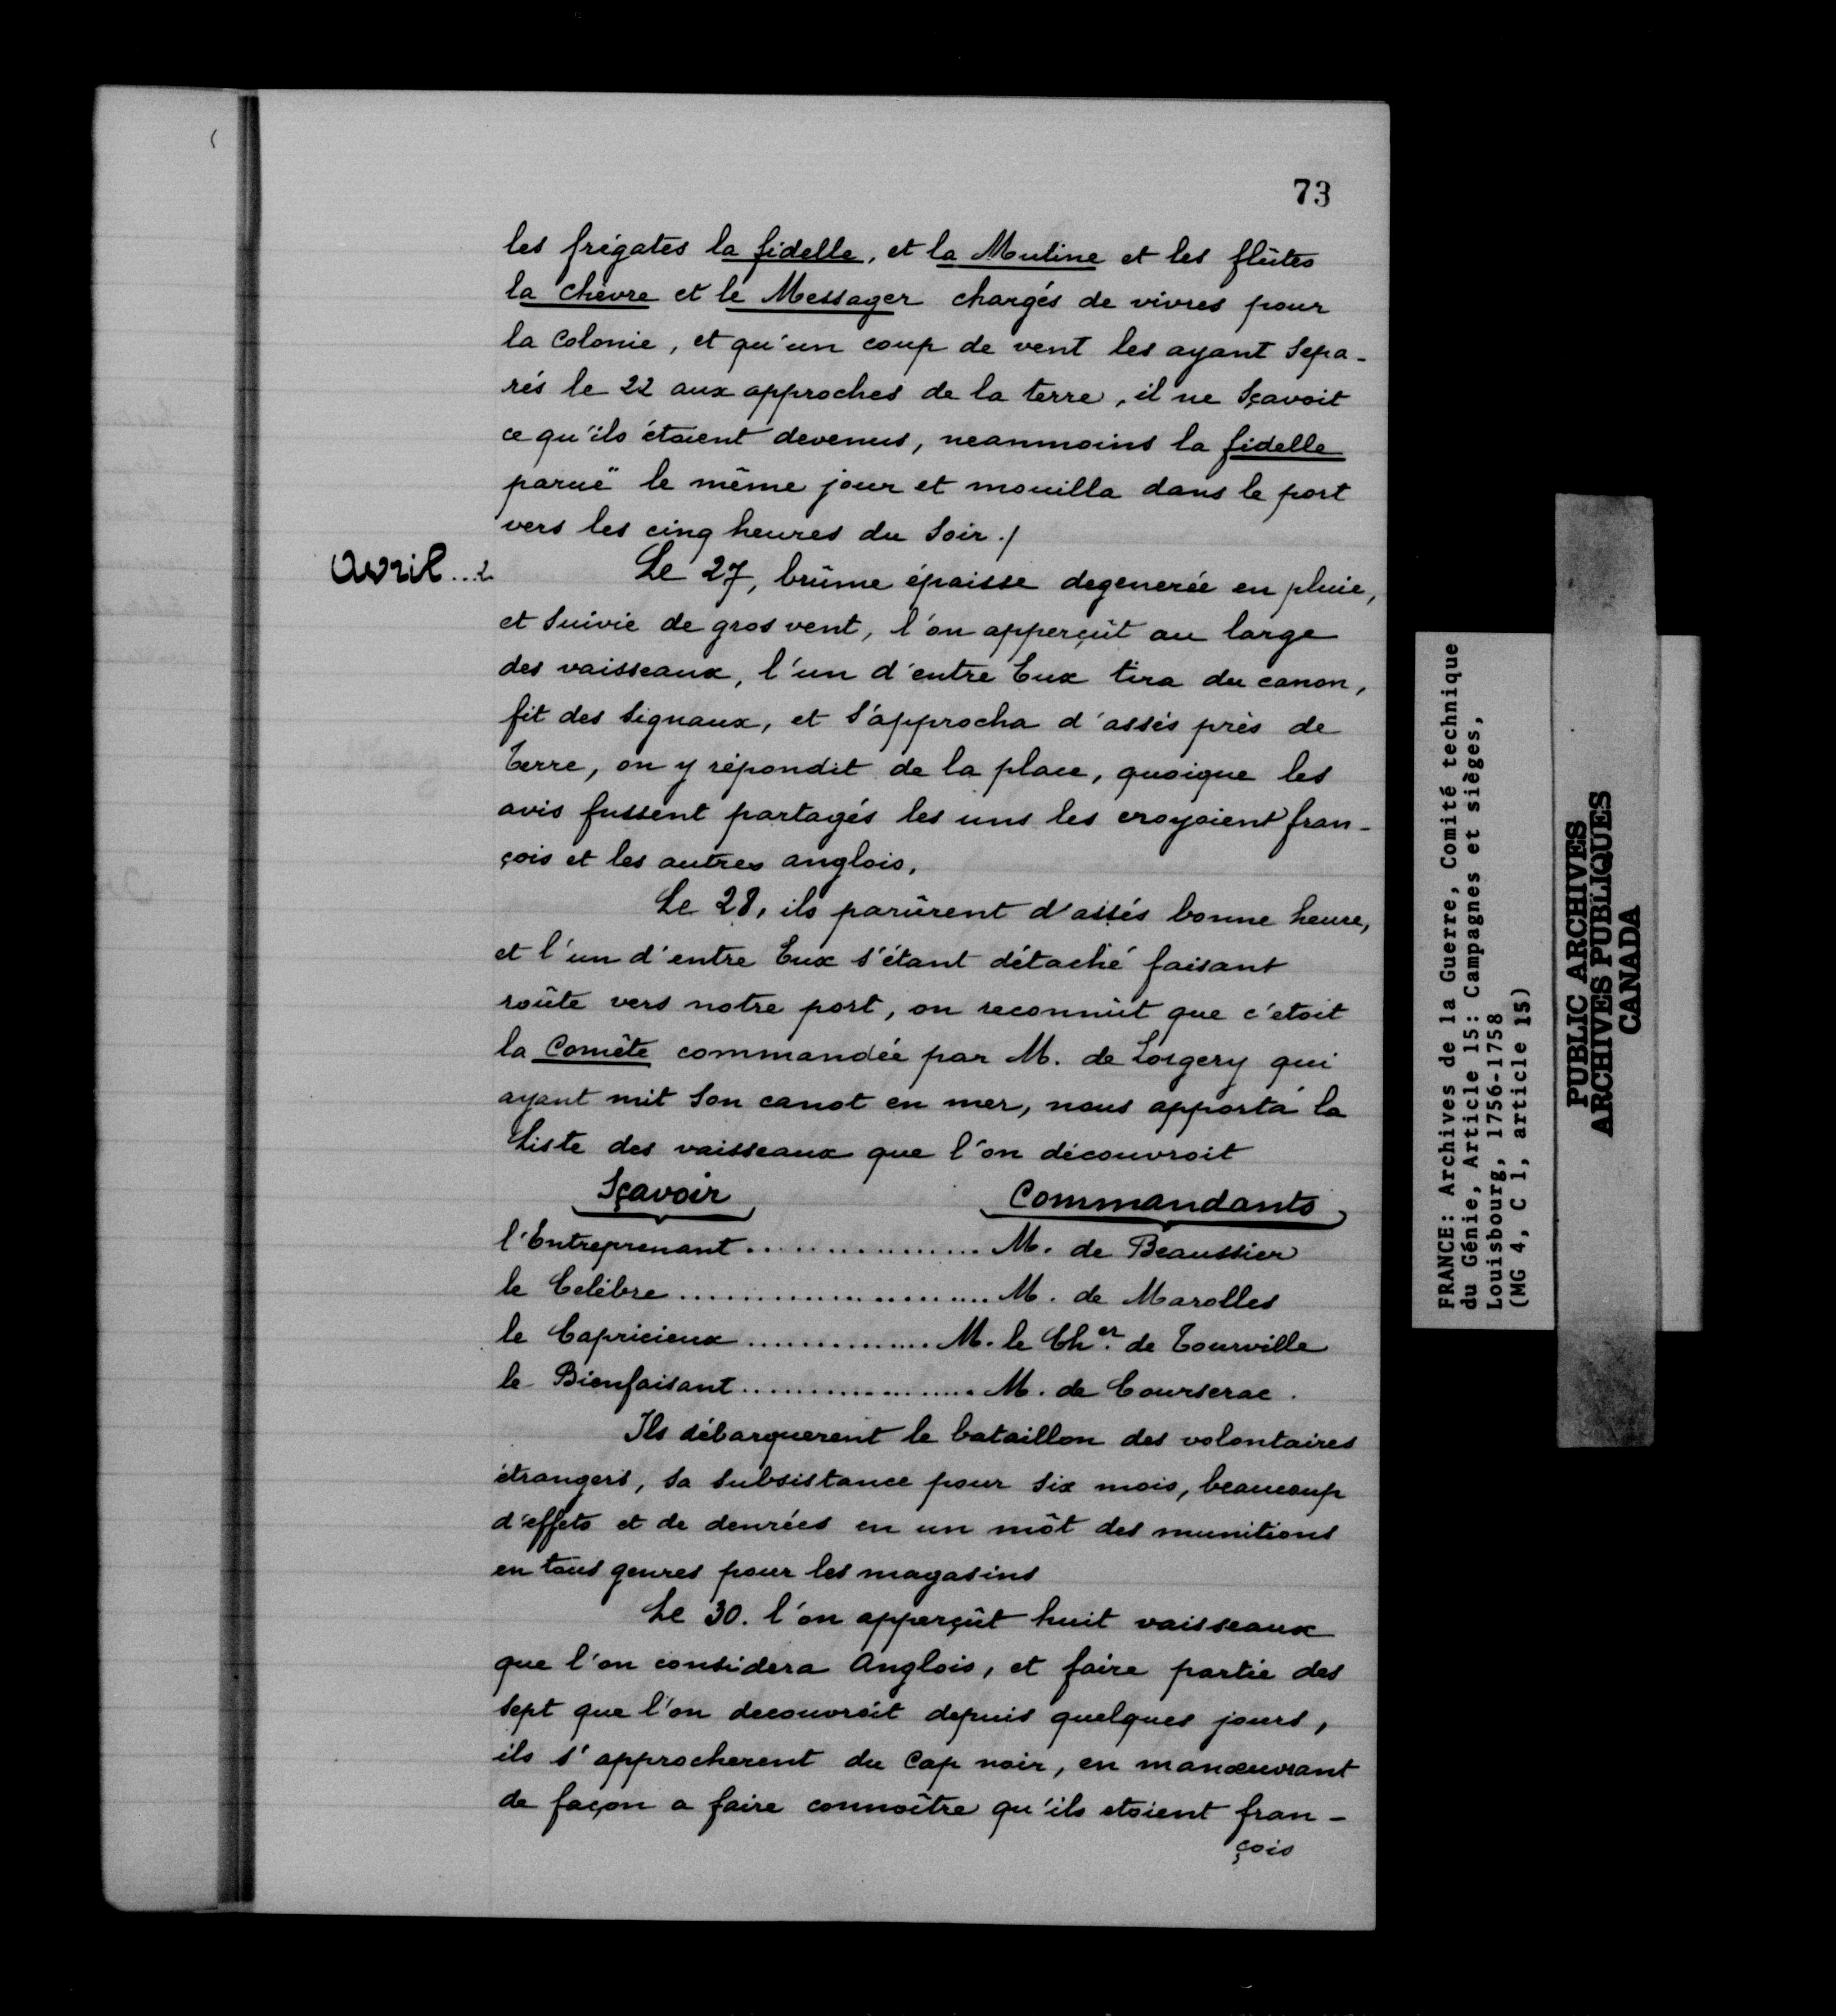 73
les frégates la fidelle, et la Mutine et les flûtes
la chèvre et le Messager chargés de vivres pour
la Colonie, et qu'un coup de vent les ayant Sepa-
rés le 22 aux approches de la terre, il ne Sçavoit
ce qu'ils étoient devenus, neanmoins la fidelle
paruë le même jour et mouilla dans le port
vers les cinq heures du Soir./
Avril...
Le 27, brûme épaisse degenerée en pluie,
et Suivie de gros vent, l'on apperçût au large
des vaisseaux, l'un d'entre Eux tira du canon,
fit des Signaux, et S'approcha d'assés près de
Terre, on y répondit de la place, quoique les
avis fussent partagés les uns les croyoient fran-
çois et les autres anglois.
Le 28, ils parûrent d'assés bonne heure,
et l'un d'entre Eux s'étant détaché faisant
roûte vers notre port, on reconnût que c'etoit
la Comête commandée par M. de Lorgery qui
ayant mit Son canot en mer, nous apporta la
Liste des vaisseaux que l'on découvroit
Sçavoir Commandants
l'Entreprenant.................. M. de Beaussier
le Celébre........................ M. de Marolles
le Capricieux............... M. le Cher. de Tourville
le Bienfaisant................... M. de Courserac.
Ils débarquerent le bataillon des volontaires
étrangers, Sa Subsistance pour Six mois, beaucoup
d'effets et de denrées en un môt des munitions
en tous genres pour les magasins
Le 30. l'on apperçût huit vaisseaux
que l'on considera Anglois, et faire partie des
Sept que l'on decouvroit depuis quelques jours,
ils s'approcherent du Cap noir, en manœuvrant
de façon a faire connoître qu'ils etoient fran-
çois
FRANCE: Archives de la Guerre, Comité technique
du Génie, Article 15: Campagnes et sièges,
Louisbourg, 1756-1758
(MG 4, C 1, article 15)
PUBLIC ARCHIVES
ARCHIVES PUBLIQUES
CANADA